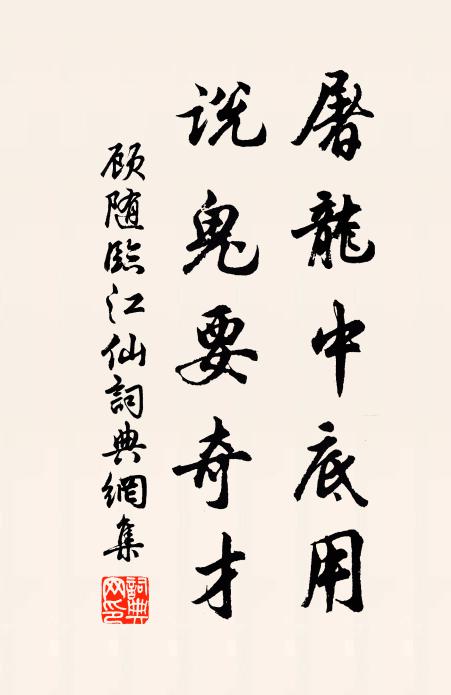 屠龍中底用
説鬼要奇才
顾随臨江仙詞典網集
詞典网印